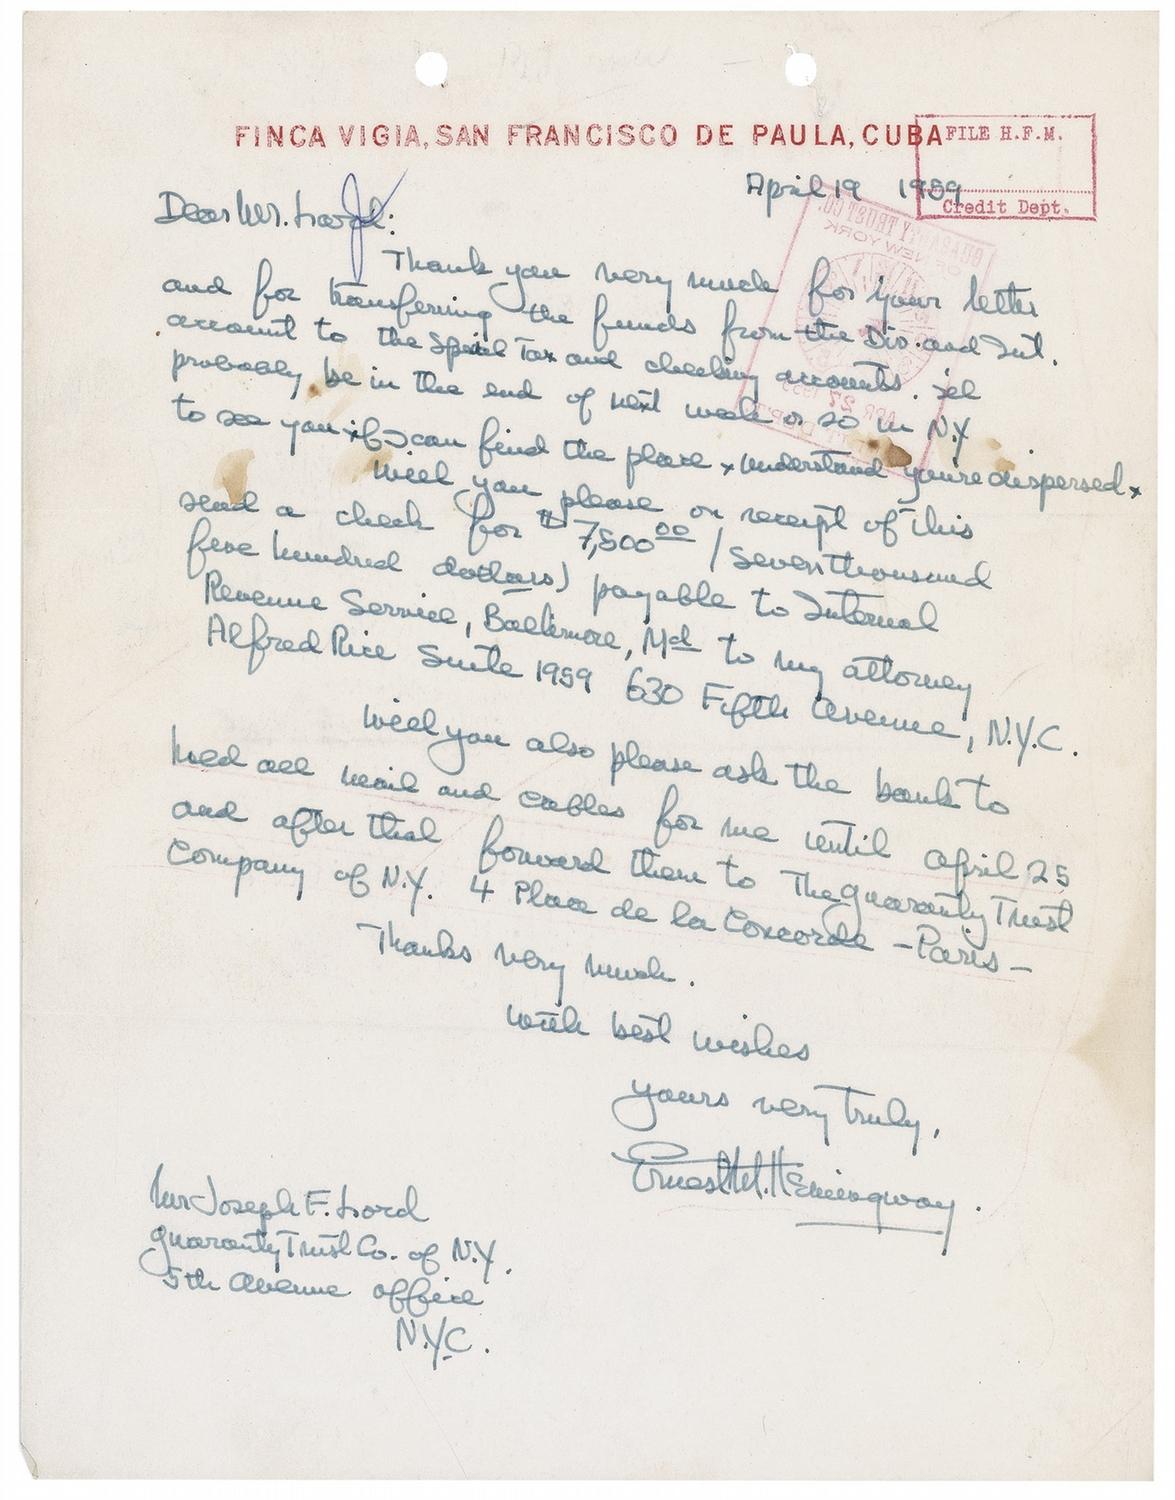 FINCA VIGIA, SAN FRANCISCO DE PAULA, CUBA
FILE H.F.M.
Credit Dept.
April 19 1959
Dear Mr. Lord:
Thank you very much for your letter
and for transferring the funds from the Div. and Int.
account to the Special Tax and checking accounts. Will
probably be in the end of next week or so in N.Y
to see you if I can find the place x understand you're dispersed x
Will you please on receipt of this
send a check for $7,500.00 / seven thousand
five hundred dollars) payable to Internal
Revenue Service, Baltimore, Md to my attorney
Alfred Rice Suite 1959 630 Fifth Avenue, N.Y.C.
Will you also please ask the bank to
hold all mail and cables for me until April 25
and after that forward them to The Guaranty Trust
Company of N.Y. 4 Place de la Concorde - Paris -
Thanks very much.
With best wishes
yours very truly,
Ernest M. Hemingway.
Mr Joseph F. Lord
Guaranty Trust Co. of N.Y.
5th Avenue office
N.Y.C.
GUARANTY TRUST CO.
OF NEW YORK
APR 27 1959